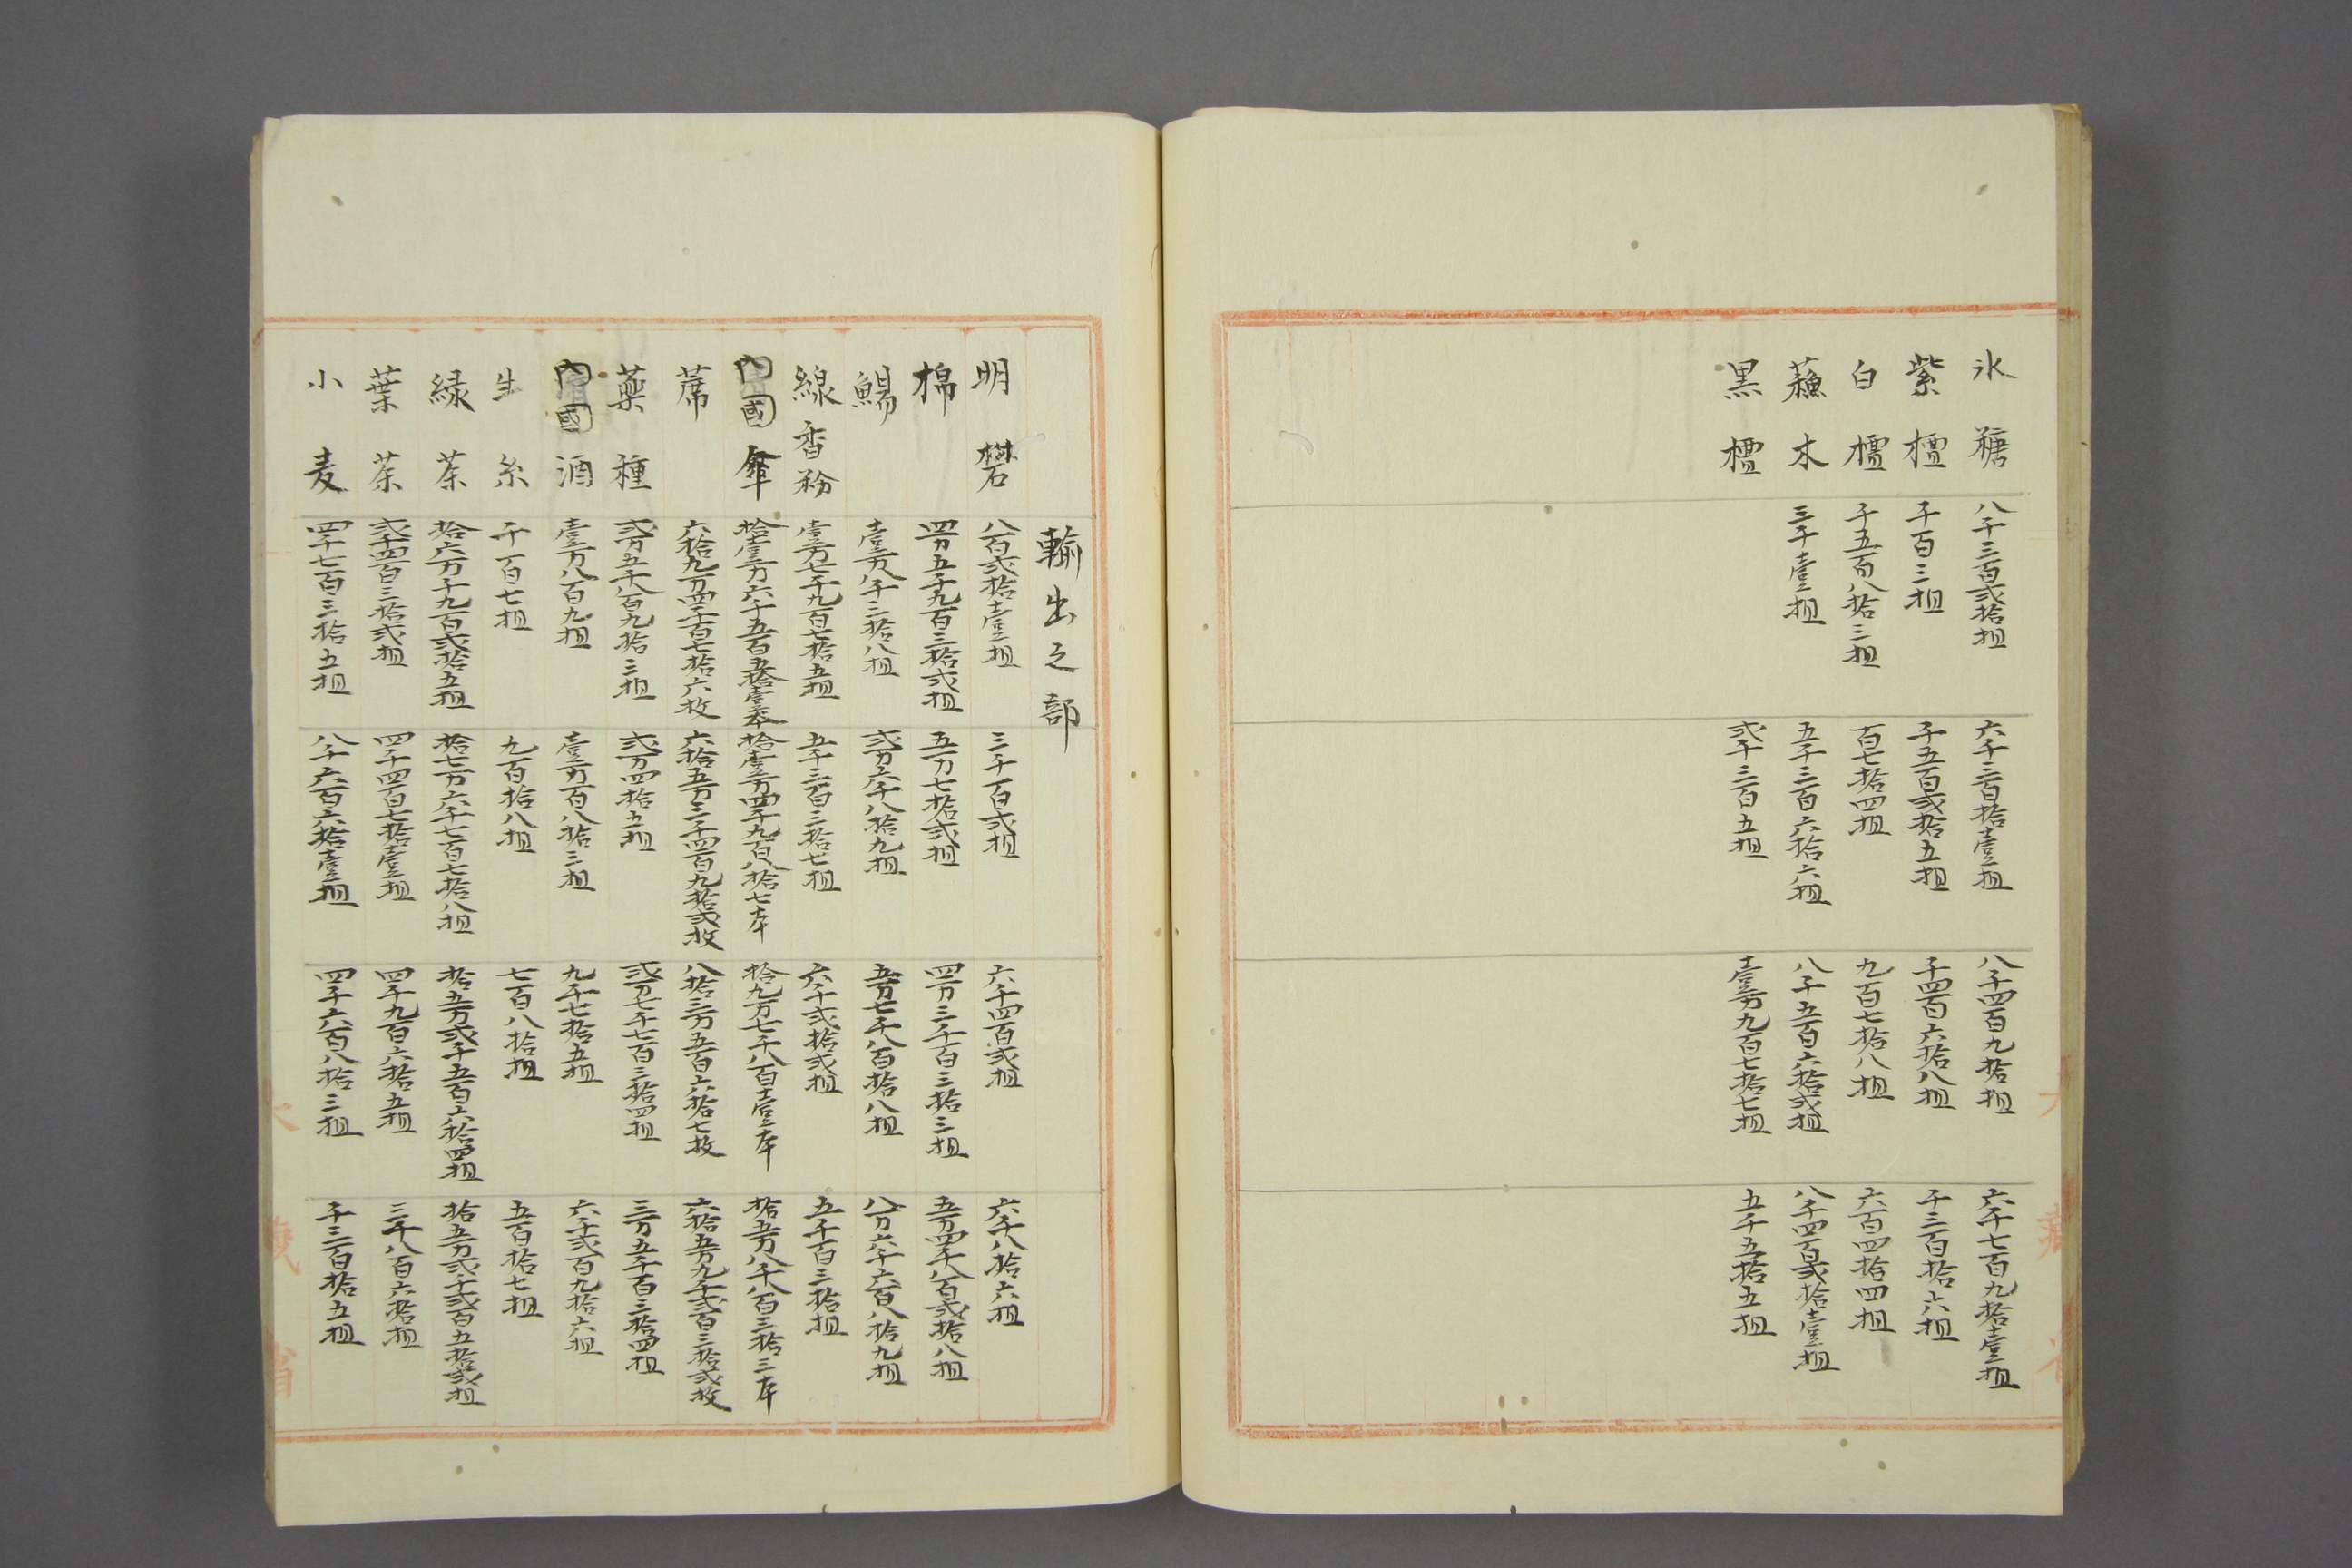 氷糖 八千三百弐拾担 六千三百拾壹担 八千四百九拾担 六千七百九拾壹担
紫檀 千百三担 千五百弐拾五担 千四百六拾八担 千三百拾六担
白檀 千五百八拾三担 百七拾四担 九百七拾八担 六百四拾四担
蘓木 三千壹担 五千三百六拾六担 八千五百六拾弐担 八千四百弐拾壹担
黒檀 弐千三百五担 壹万九百七拾七担 五千五拾五担
輸出之部
明礬 八百弐拾壹担 三千百弐担 六千四百弐担 六千八拾六担
棉 四万五千九百三拾弐担 五万七拾弐担 四万三千百三拾三担 五万四千八百弐拾八担
鯣 壹万八千三拾八担 弐万六千八拾九担 五万七千八百拾八担 八万六千六百八拾九担
線香粉 壹万七千九百七拾五担 五千三百三拾七担 六千弐拾弐担 五千百三拾担
内國傘 拾壹万六千五百五拾壹本 拾壹万四千九百八拾七本 拾九万七千八百壹本 拾五万八千八百三拾三本
蓆 六拾九万四千百七拾六枚 六拾五万三千四百九拾弐枚 八拾三万五百六拾七枚 六拾五万九千弐百三拾弐枚
薬種 弐万五千八百九拾三担 弐万四拾五担 弐万七千七百三拾四担 三万五千百三拾四担
内國酒 壹万八百九担 壹万百八拾三担 九千七拾五担 六千弐百九拾六担
生糸 千百七担 九百拾八担 七百八拾担 五百拾七担
緑茶 拾六万千九百弐拾五担 拾七万六千七百七拾八担 拾五万弐千五百六拾四担 拾五万弐千弐百五拾弐担
葉茶 弐千四百三拾弐担 四千四百七拾壹担 四千九百六拾五担 三千八百六拾担
小麦 四千七百三拾五担 八千六百六拾壹担 四千六百八拾三担 千三百拾五担